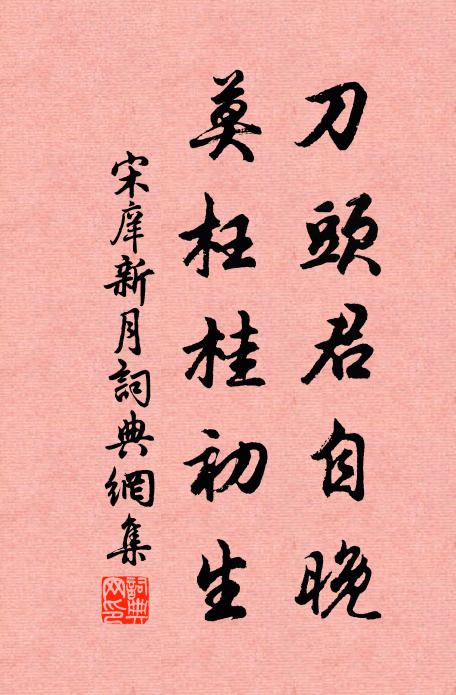 刀頭君自晚
莫枉桂初生
宋庠新月詞典網集
詞典網印